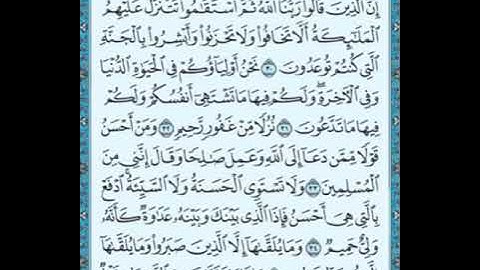 إِنَّ ٱلَّذِينَ قَالُوا۟ رَبُّنَا ٱللَّهُ ثُمَّ ٱسْتَقَـٰمُوا۟ تَتَنَزَّلُ عَلَيْهِمُ
ٱلْمَلَـٰٓئِكَةُ أَلَّا تَخَافُوا۟ وَلَا تَحْزَنُوا۟ وَأَبْشِرُوا۟ بِٱلْجَنَّةِ
ٱلَّتِى كُنتُمْ تُوعَدُونَ ٣٠ نَحْنُ أَوْلِيَآؤُكُمْ فِى ٱلْحَيَوٰةِ ٱلدُّنْيَا
وَفِى ٱلْـَٔاخِرَةِ ۖ وَلَكُمْ فِيهَا مَا تَشْتَهِىٓ أَنفُسُكُمْ وَلَكُمْ
فِيهَا مَا تَدَّعُونَ ٣١ نُزُلًا مِّنْ غَفُورٍ رَّحِيمٍ ٣٢ وَمَنْ أَحْسَنُ
قَوْلًا مِّمَّن دَعَآ إِلَى ٱللَّهِ وَعَمِلَ صَـٰلِحًا وَقَالَ إِنَّنِى مِنَ
ٱلْمُسْلِمِينَ ٣٣ وَلَا تَسْتَوِى ٱلْحَسَنَةُ وَلَا ٱلسَّيِّئَةُ ۚ ٱدْفَعْ
بِٱلَّتِى هِىَ أَحْسَنُ فَإِذَا ٱلَّذِى بَيْنَكَ وَبَيْنَهُۥ عَدَٰوَةٌ كَأَنَّهُۥ
وَلِىٌّ حَمِيمٌ ٣٤ وَمَا يُلَقَّىٰهَآ إِلَّا ٱلَّذِينَ صَبَرُوا۟ وَمَا يُلَقَّىٰهَآ